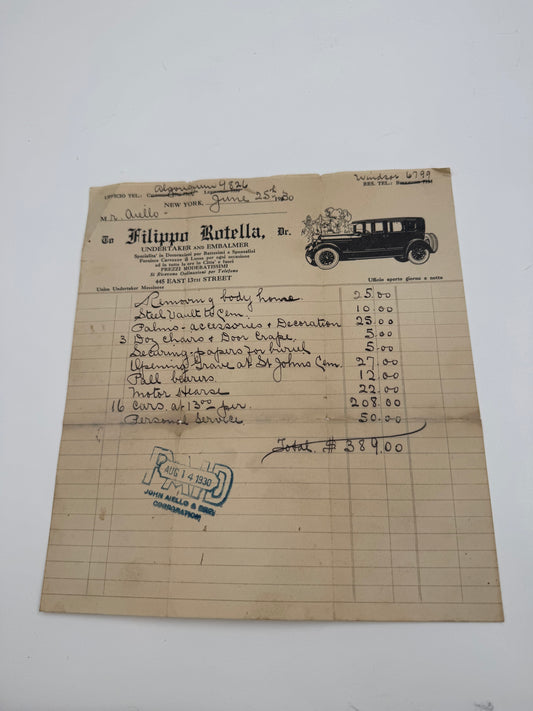 Algonquin 9826
UFFICIO TEL.:
Windsor 6799
RES. TEL.:
NEW YORK, June 25th 1930
Mr. Aiello -
To Filippo Rotella, Dr.
UNDERTAKER AND EMBALMER
Specialita' in Decorazioni per Battesimi e Sposalizi
Fornisce Carrozze di Lusso per ogni occasione
ed in tutte le ore in Citta' e fuori
PREZZI MODERATISSIMI
Si Ricevono Ordinazioni per Telefono
445 EAST 13TH STREET
Union Undertaker Messinese
Ufficio aperto giorno e notte
Removing body home 25.00
Steel Vault to Cem. 10.00
Palms - accessories & Decoration 25.00
3 Doz Chairs & Door Crape 5.00
Securing papers for burial 5.00
Opening Grave at St Johns Cem. 27.00
Pall bearers 12.00
Motor Hearse 22.00
16 Cars. at 13.00 per. 208.00
Personal Service 50.00
Total. $ 389.00
PAID
AUG 14 1930
JOHN AIELLO & BROS
CORPORATION